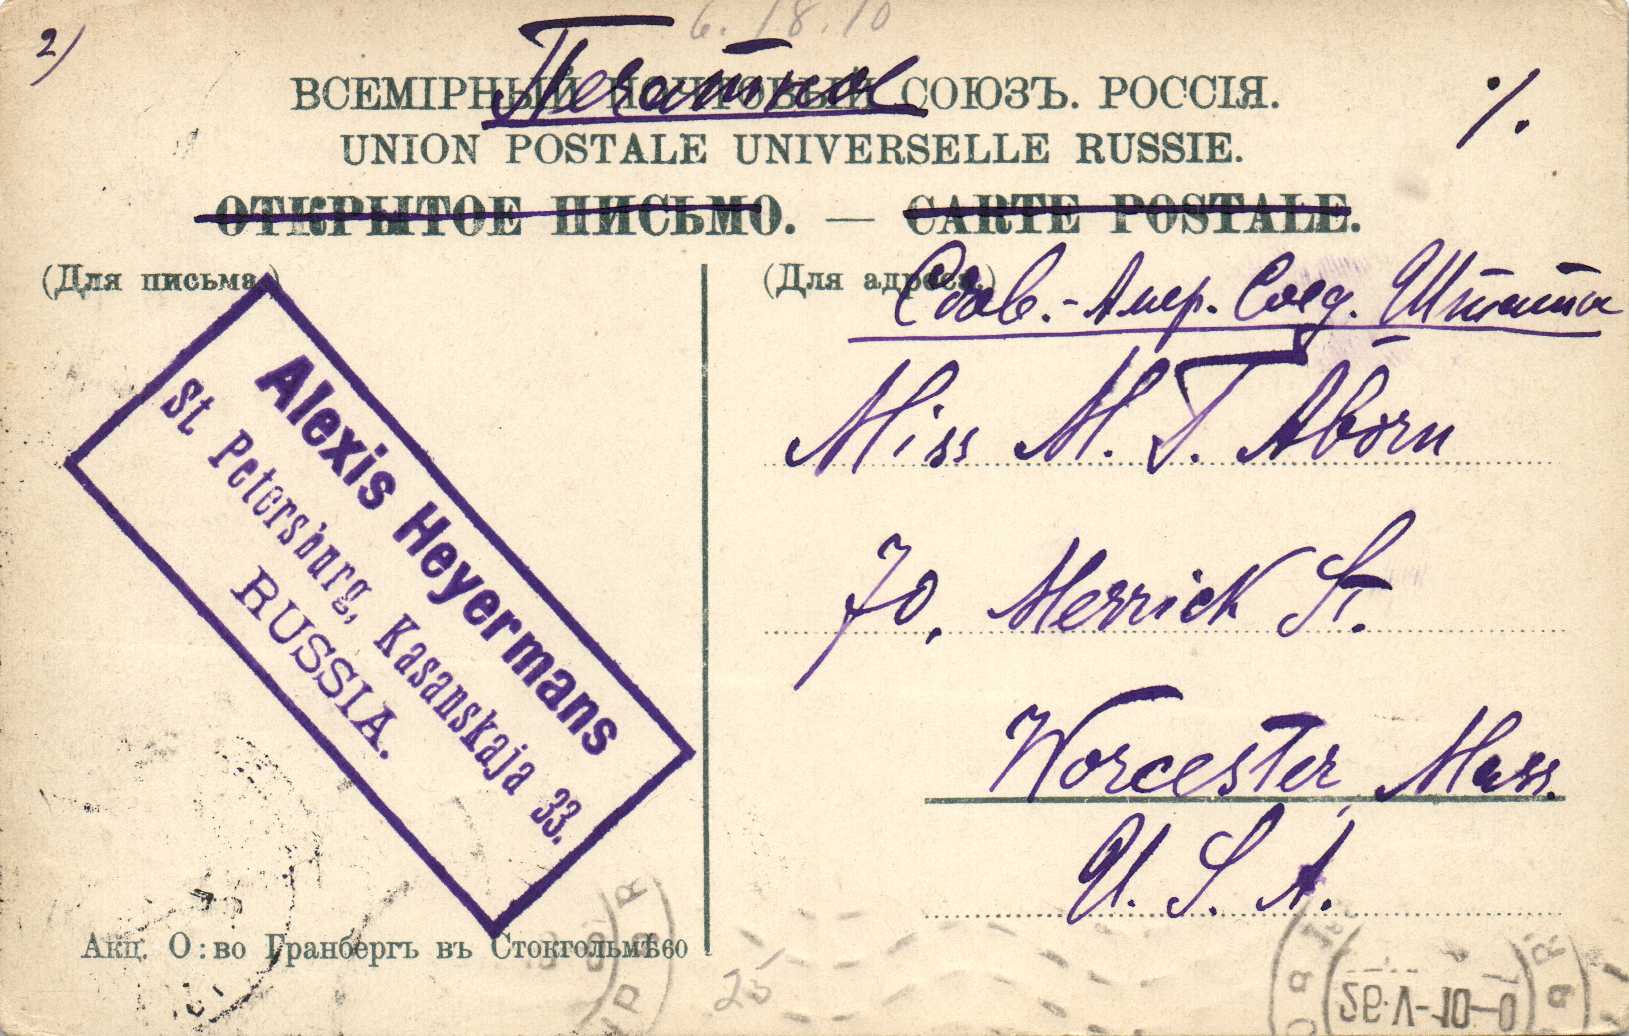 2)
6.18.10
Печатное
ВСЕМІРНЫЙ ПОЧТОВЫЙ СОЮЗЪ. РОССІЯ.
%
UNION POSTALE UNIVERSELLE RUSSIE.
ОТКРЫТОЕ ПИСЬМО. — CARTE POSTALE.
(Для письма.)
(Для адреса.)
Сѣв.-Амер. Соед. Штаты
Alexis Heyermans
St. Petersburg, Kasanskaja 33.
RUSSIA.
Miss M. T. Aborn
70, Merrick St.
Worcester, Mass.
U. S. A.
Акц. О:во Гранбергъ въ Стокгольмѣ 60
25